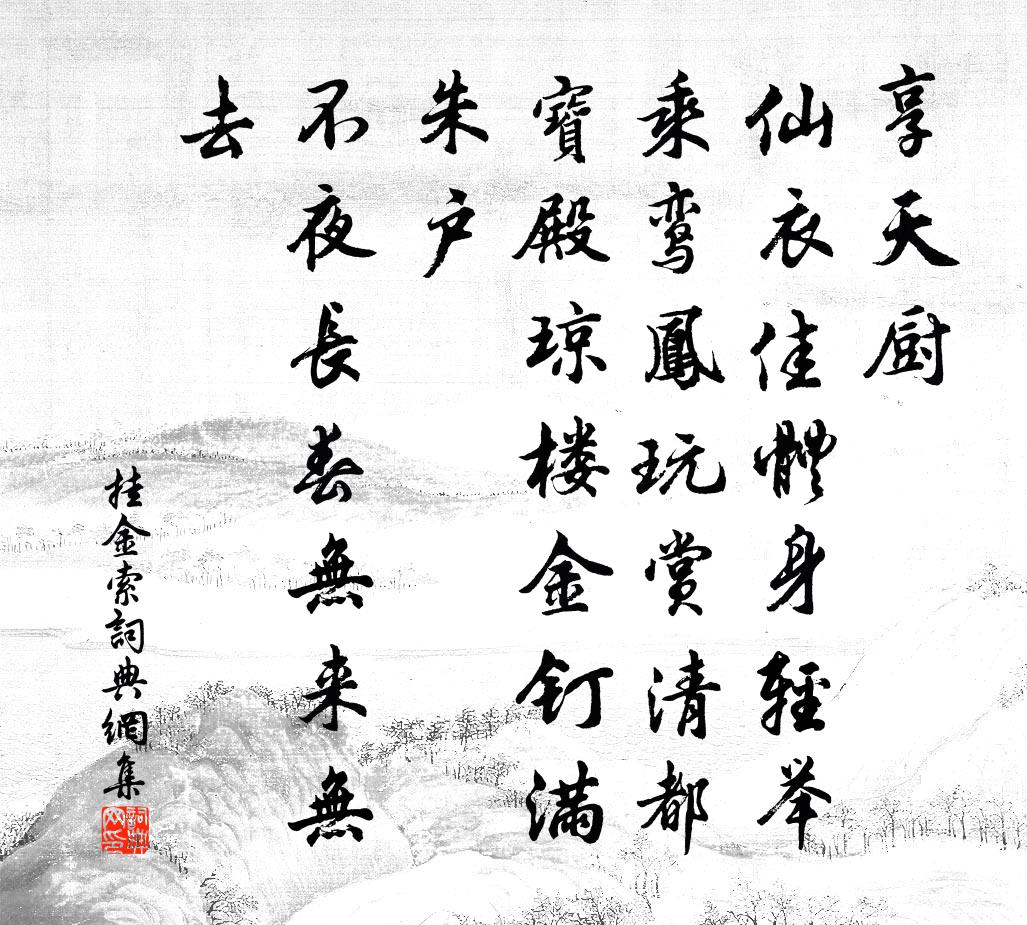 享天厨
仙衣佳體身輕举
乘鸾鳳玩赏清都
寶殿琼楼金釘满
朱户
不夜長春無来無
去
挂金索詞典網集